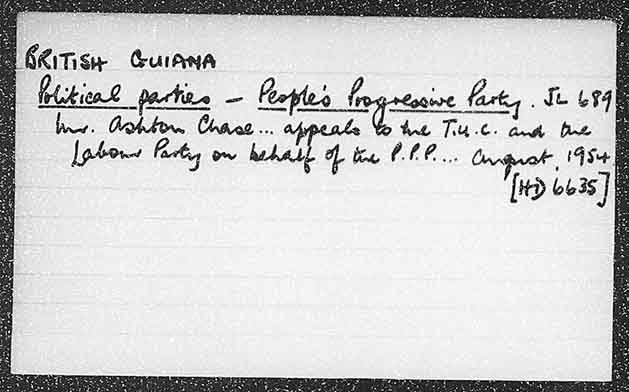 BRITISH GUIANA
Political parties - People's Progressive Party. JL 689
Mr. Ashton Chase... appeals to the T.U.C. and the
Labour Party on behalf of the P.P.P.... August, 1954
[HD 6635]